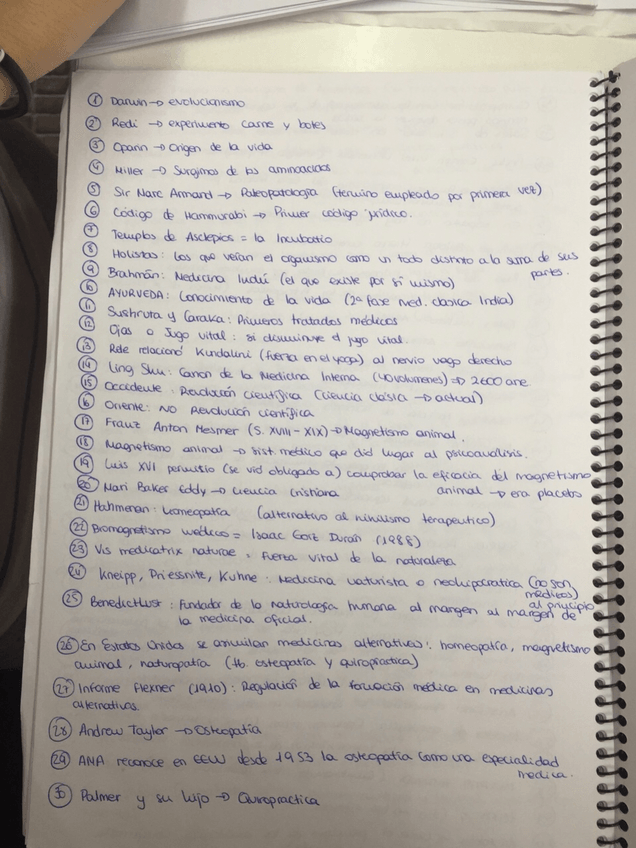 ① Darwin → evolucionismo
② Redi → experimento carne y botes
③ Oparin → Origen de la vida
④ Miller → Surgimos de los aminoacidos
⑤ Sir Marc Armand → Paleopatología (termino empleado por primera vez)
⑥ Código de Hammurabi → Primer código jurídico.
⑦ Templos de Asclepios = la Incubatio
⑧ Holistas: Los que veían el organismo como un todo distinto a la suma de sus partes.
⑨ Brahmán: Medicina hindú (el que existe por sí mismo)
⑩ AYURVEDA: Conocimiento de la vida (2ª fase med. clasica India)
⑪ Sushruta y Caraka: Primeros tratados médicos
⑫ Ojas o Jugo vital: si disminuye el jugo vital.
⑬ Rele relacionó Kundalini (fuerza en el yoga) al nervio vago derecho
⑭ Ling Shu: Canon de la Medicina Interna (40 volumenes) ⇒ 2600 ane
⑮ Occidente: Revolución científica (ciencia clásica → actual)
⑯ Oriente: NO Revolución científica
⑰ Franz Anton Mesmer (S. XVIII - XIX) → Magnetismo animal.
⑱ Magnetismo animal → sist. médico que dió lugar al psicoanálisis.
⑲ Luis XVI permitio (se vió obligado a) comprobar la eficacia del magnetismo animal → era placebo
⑳ Mari Baker Eddy → Ciencia Cristiana
㉑ Hahneman: homeopatía (alternativo al nihilismo terapeutico)
㉒ Biomagnetismo médico = Isaac Goiz Durán (1988)
㉓ Vis medicatrix naturae = fuerza vital de la naturaleza
㉔ Kneipp, Priessnitz, Kuhne: Medicina naturista o neohipocratica (no son médicos) al principio
㉕ Benedict Lust: Fundador de la naturología humana al margen al margen de la medicina oficial.
㉖ En Estados Unidos se asimilan medicinas alternativas: homeopatía, magnetismo
animal, naturopatía (tb. osteopatía y quiropractica)
㉗ Informe Flexner (1910): Regulación de la formación médica en medicinas
alternativas.
㉘ Andrew Taylor → Osteopatía
㉙ ANA reconoce en EEUU desde 1953 la osteopatía como una especialidad
medica.
㉚ Palmer y su hijo → Quiropractica